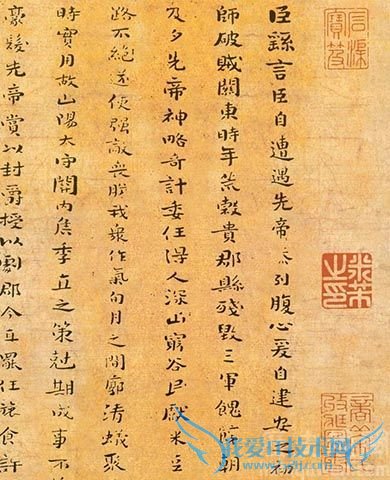 臣繇言臣自遭遇先帝忝列腹心爰自建安之初
師破賊關東時年荒穀貴郡縣殘毀三軍餽饟朝
及夕先帝神略奇計委任得人深山窮谷民獻米豆
路不絕遂使強敵喪膽我眾作氣旬月之間廓清蟻聚
時實用故山陽太守關內侯季直之策剋期成事不
豪髮先帝賞以封爵授以劇郡今直罷任旅食許
米芾之印
我爱IT技术网